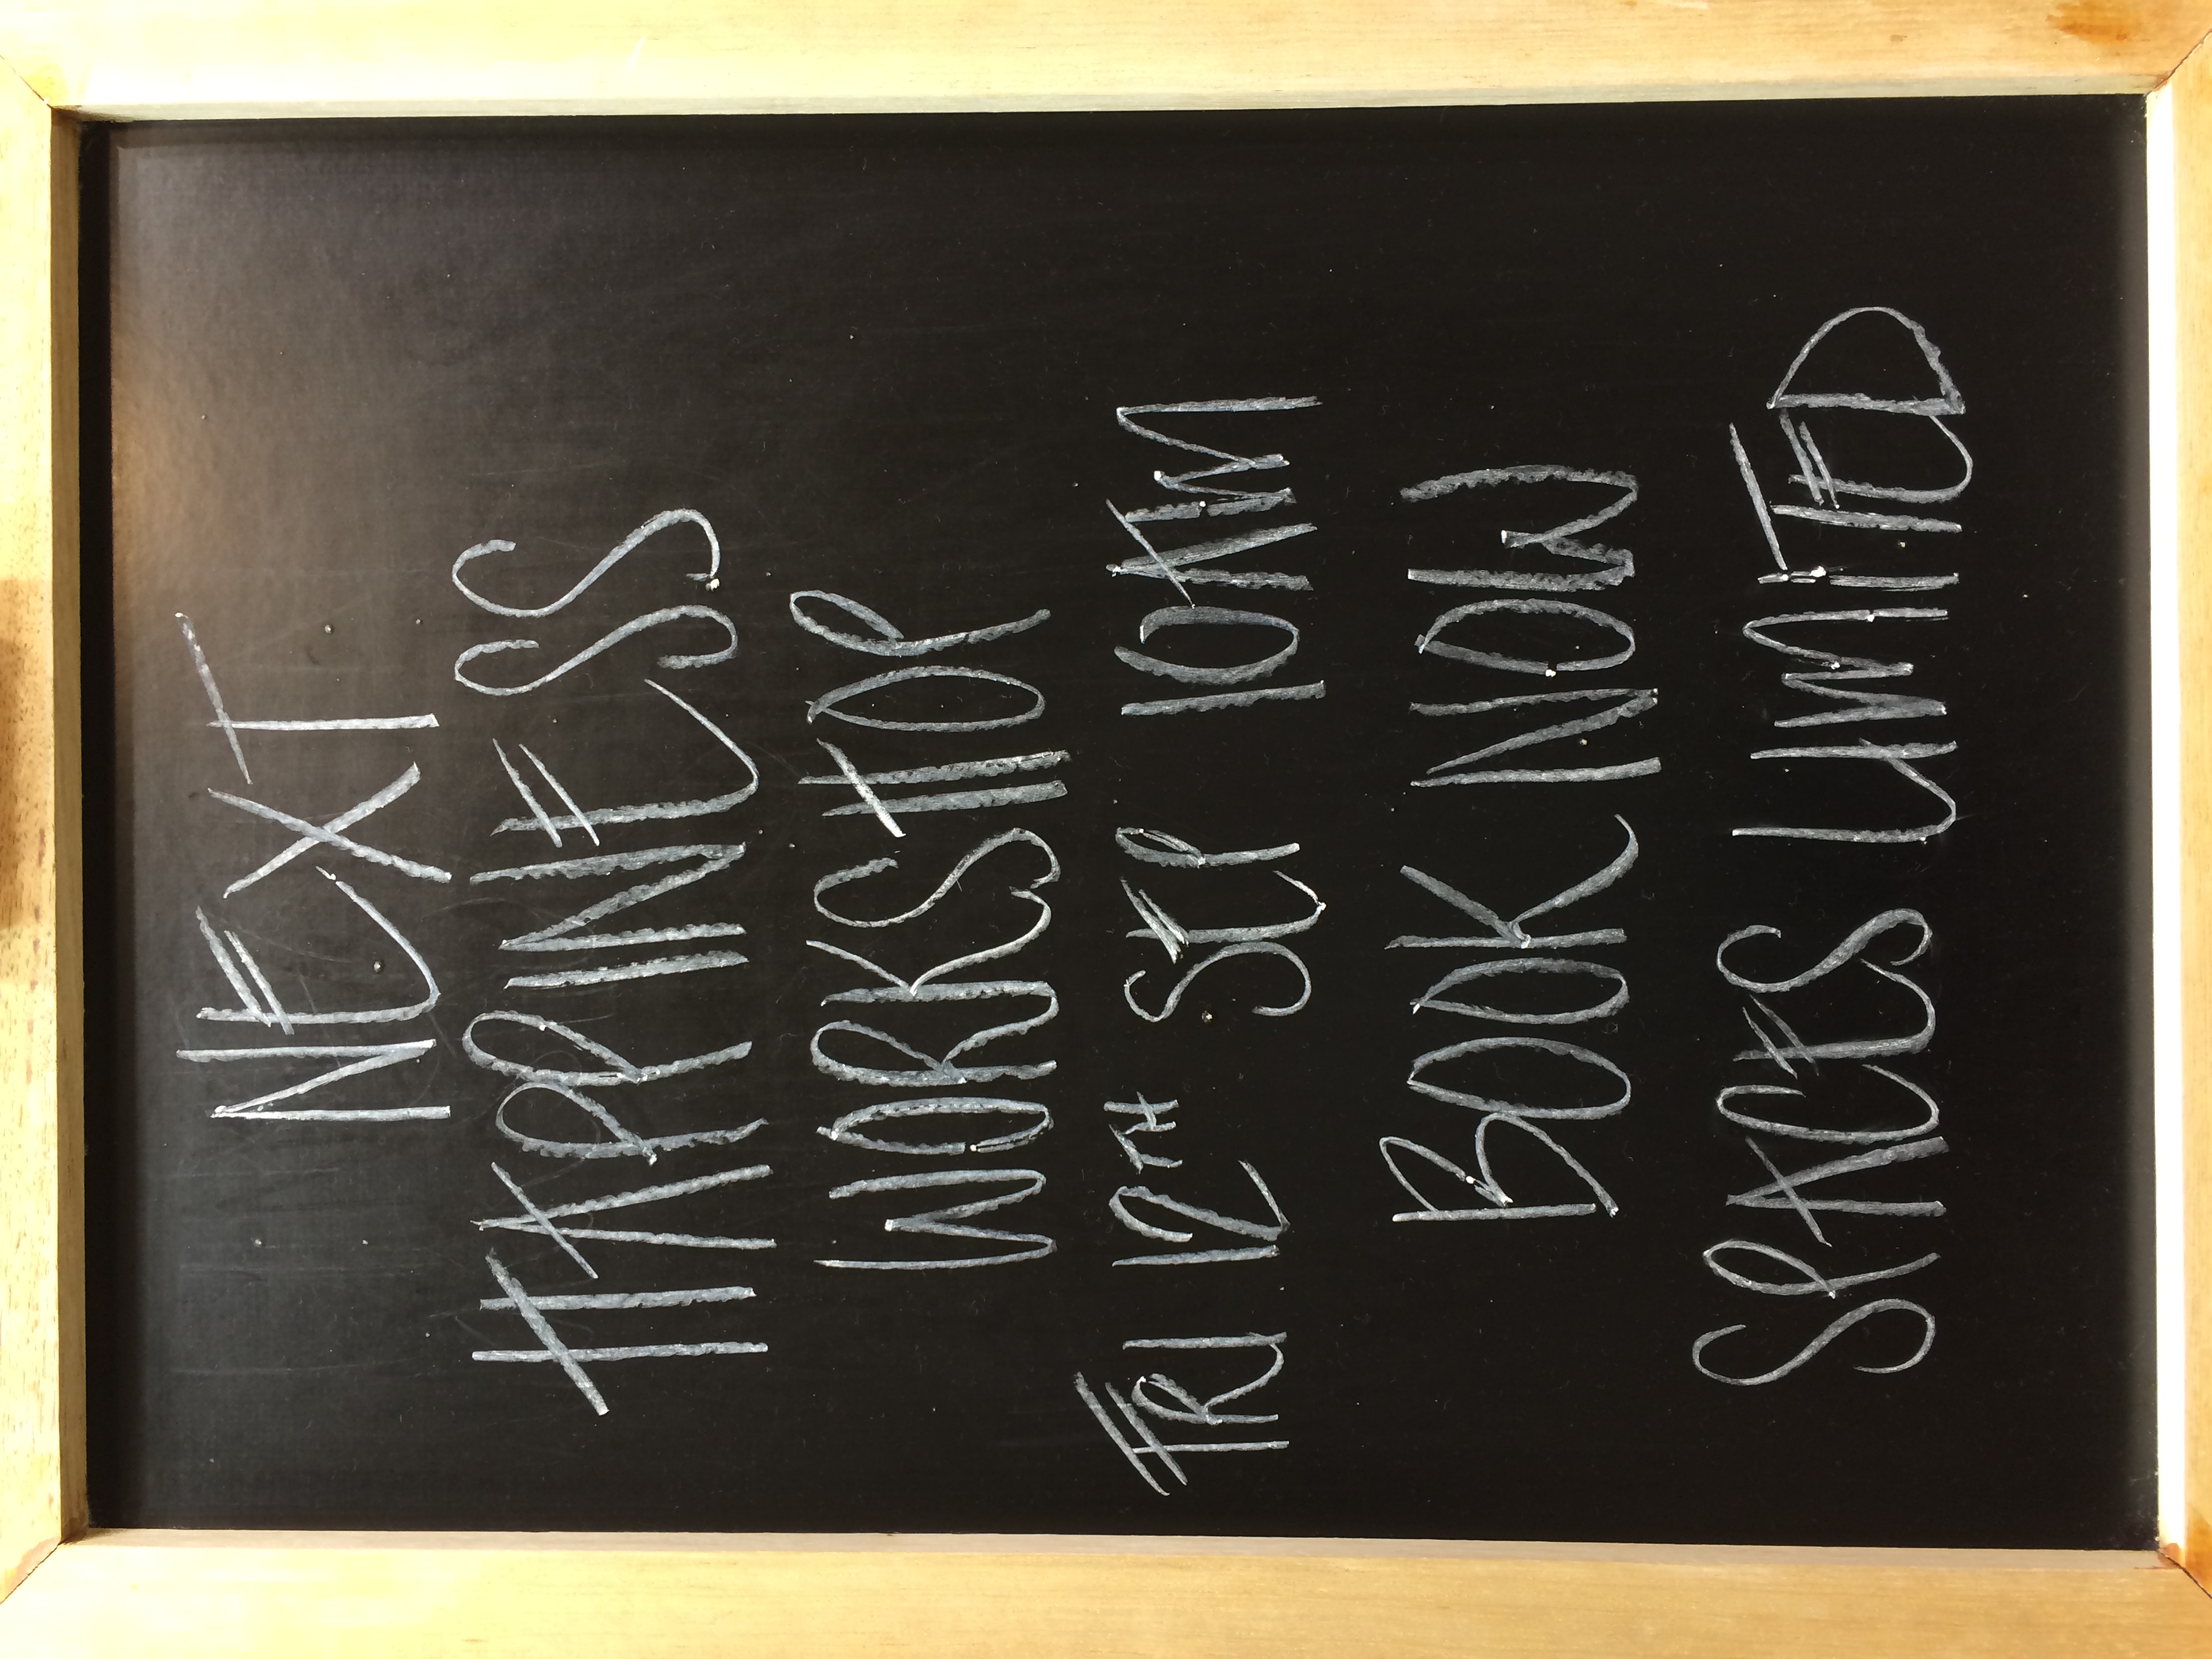 NEXT
HAPPINESS
WORKSHOP
FRI 12TH SEP 10AM
BOOK NOW
SPACES LIMITED